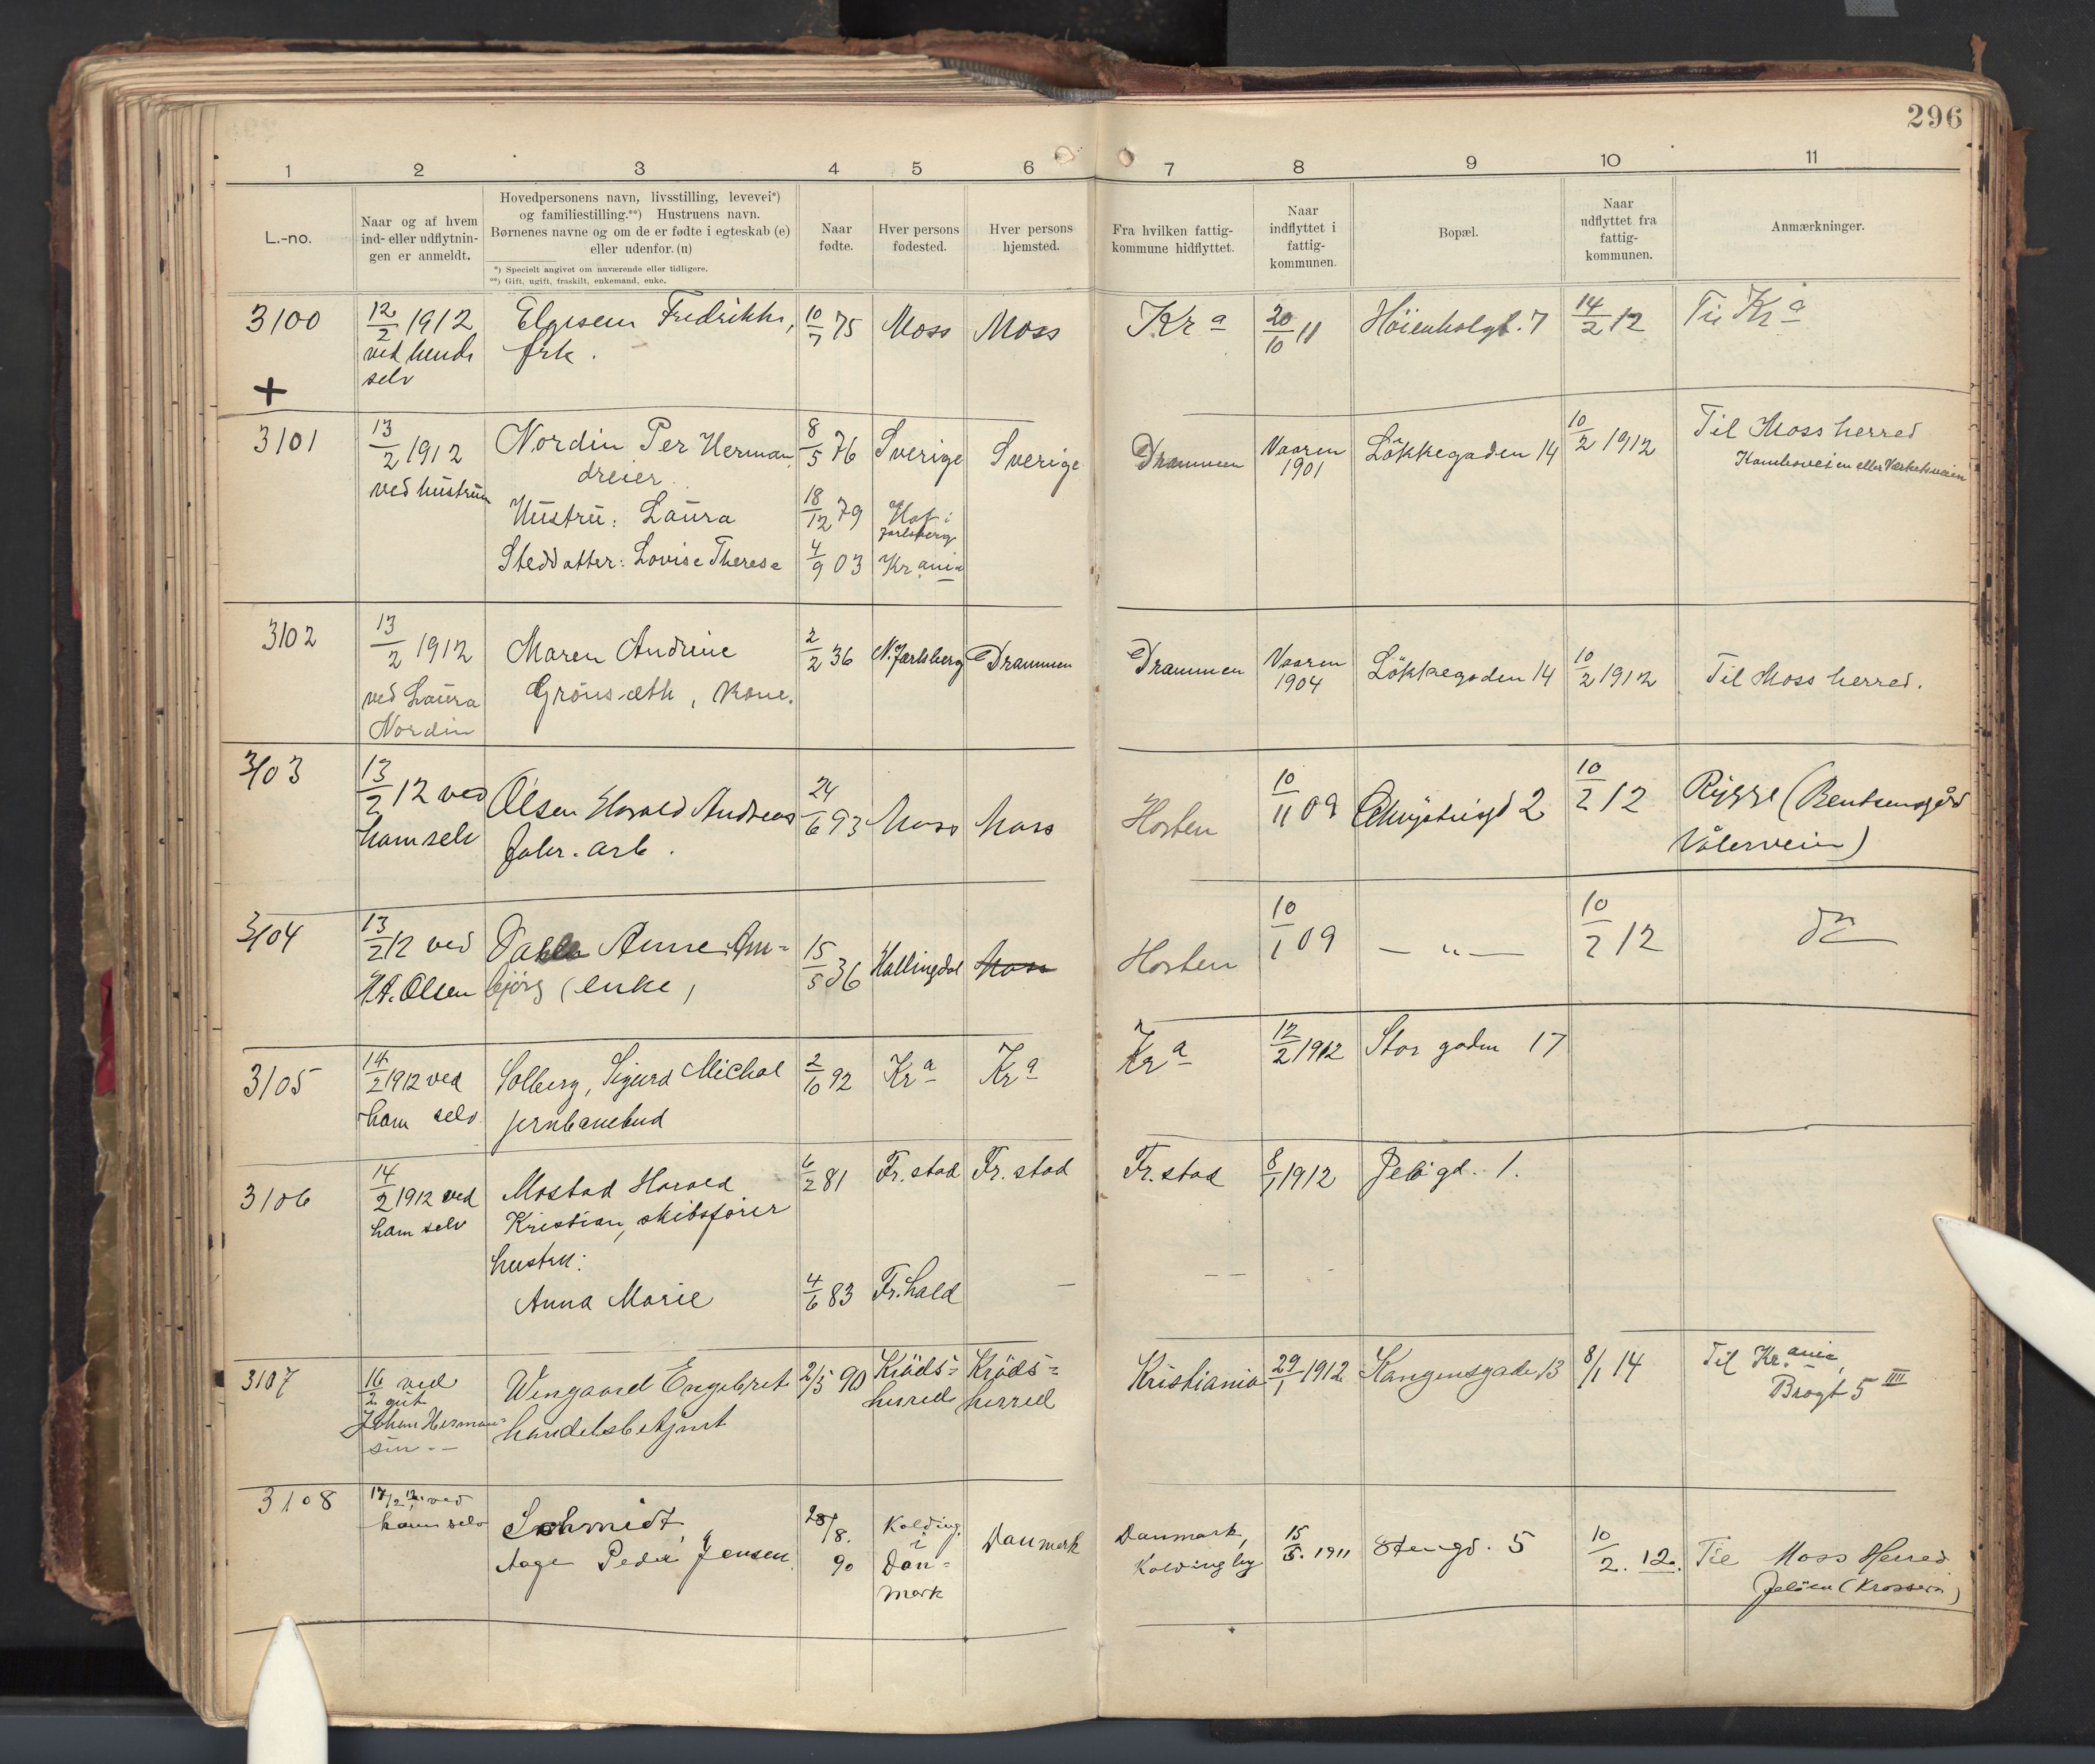 296
1 2 3 4 5 6 7 8 9 10 11
L.-no.
Naar og af hvem
ind- eller udflytnin-
gen er anmeldt.
Hovedpersonens navn, livsstilling, levevei*)
og familiestilling.**) Hustruens navn.
Børnenes navne og om de er fødte i egteskab (e)
eller udenfor. (u)
*) Specielt angivet om nuværende eller tidligere.
**) Gift, ugift, fraskilt, enkemand, enke.
Naar
fødte.
Hver persons
fødested.
Hver persons
hjemsted.
Fra hvilken fattig-
kommune hidflyttet.
Naar
indflyttet i
fattig-
kommunen.
Bopæl.
Naar
udflyttet fra
fattig-
kommunen.
Anmærkninger.
3100
+
12/2 1912
ved hende
selv
Elgesem Fredrikke,
frk.
10/7 75
Moss
Moss
Kra
20/10 11
Höienholgt. 7
14/2 12
Til Kra
3101
13/2 1912
ved hustrun
Nordin Per Herman
dreier.
Hustru: Laura
Steddatter: Lovise Therese
8/5 76
18/12 79
4/9 03
Sverige
Hof i
Jarlsberg
Krania
Sverige
Drammen
Vaaren
1901
Lökkegaden 14
10/2 1912
Til Moss herred
Kamboveien eller Værketsveien
3102
13/2 1912
ved Laura
Nordin
Maren Andrine
Grönsæth, kone.
2/2 36
N. Jarlsberg
Drammen
Drammen
Vaaren
1904
Lökkegaden 14
10/2 1912
Til Moss herred.
3103
13/2 12 ved
ham selv
Olsen Harald Andreas
fabr. arb.
24/6 93
Moss
Moss
Horten
10/11 09
2
10/2 12
Rygge (Bentsengård
Vålerveien)
3104
13/2 12 ved
H.A. Olsen
Anne
björg (enke)
15/5 36
Hallingdal
Moss
Horten
10/1 09
— " —
10/2 12
do
3105
14/2 1912 ved
ham selv
Solberg, Sigurd Michal
jernbanebud
2/10 92
Kra
Kra
Kra
12/2 1912
Storgaden 17
3106
14/2 1912 ved
ham selv
Mostad Harald
Kristian, skibsfører
hustru:
Anna Marie
6/2 81
4/6 83
Fr.stad
Fr.hald
Fr.stad
—
Fr.stad
8/1 1912
Jelögd. 1.
3107
16/2 ved
Johan Herman-
sen
Wengaard Engebret
handelsbetjent
2/5 90
Kröds-
herred
Kröds-
herred
Kristiania
29/1 1912
Kongensgade 13
8/1 14
Til Kr.ania,
Brogt 5 IIII
3108
17/2 12 ved
ham selv
Schmidt,
Aage Peder Jensen
28/8.
90
Kolding
i
Dan-
mark
Danmark
Danmark,
Kolding by
15/5. 1911
Stengd. 5
10/2. 12.
Til Moss Herred
Jelöen (Krossern)